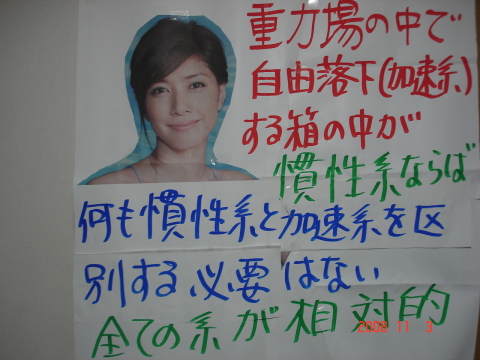 重力場の中で
自由落下(加速系)
する箱の中が
慣性系ならば
何も慣性系と加速系を区
別する必要はない
全ての系が相対的
2008 11 3